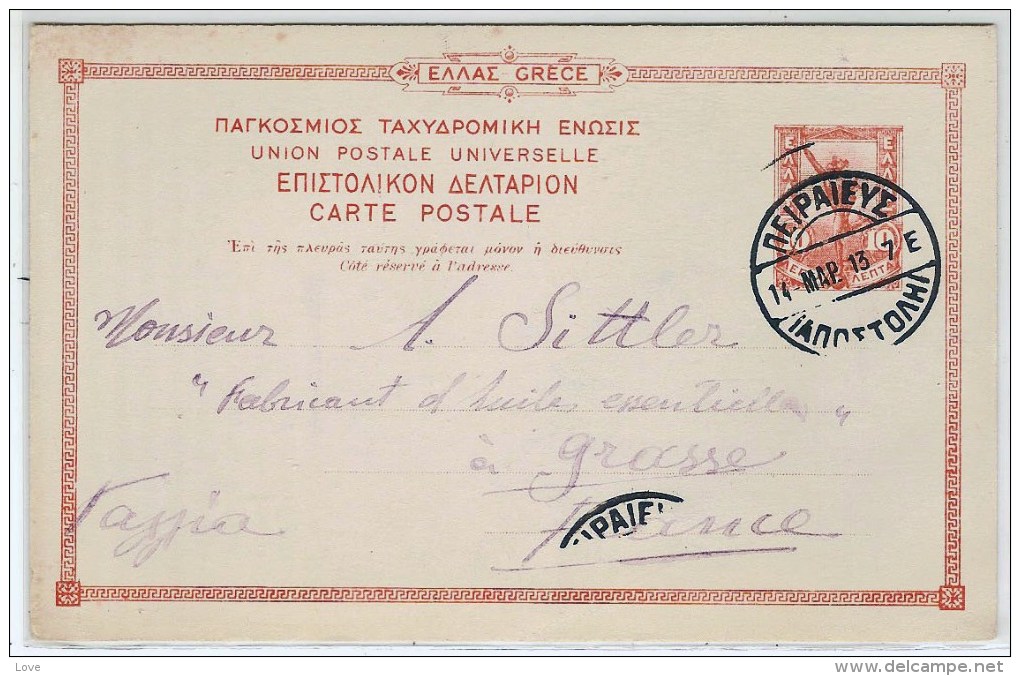 ΕΛΛΑΣ GRÈCE
ΠΑΓΚΟΣΜΙΟΣ ΤΑΧΥΔΡΟΜΙΚΗ ΕΝΩΣΙΣ
UNION POSTALE UNIVERSELLE
ΕΠΙΣΤΟΛΙΚΟΝ ΔΕΛΤΑΡΙΟΝ
CARTE POSTALE
Ἐπὶ τῆς πλευρᾶς ταύτης γράφεται μόνον ἡ διεύθυνσις
Côté réservé à l'adresse.
ΠΕΙΡΑΙΕΥΣ
14 ΜΑΡ 13 7 Ε
ΑΠΟΣΤΟΛΗ
ΛΕΠΤΑ
Monsieur A. Sittler
"Fabricant d'huiles essentielles"
à Grasse
Γαλλία France
ΙΡΑΙΕΥ
Love
delcampe.net